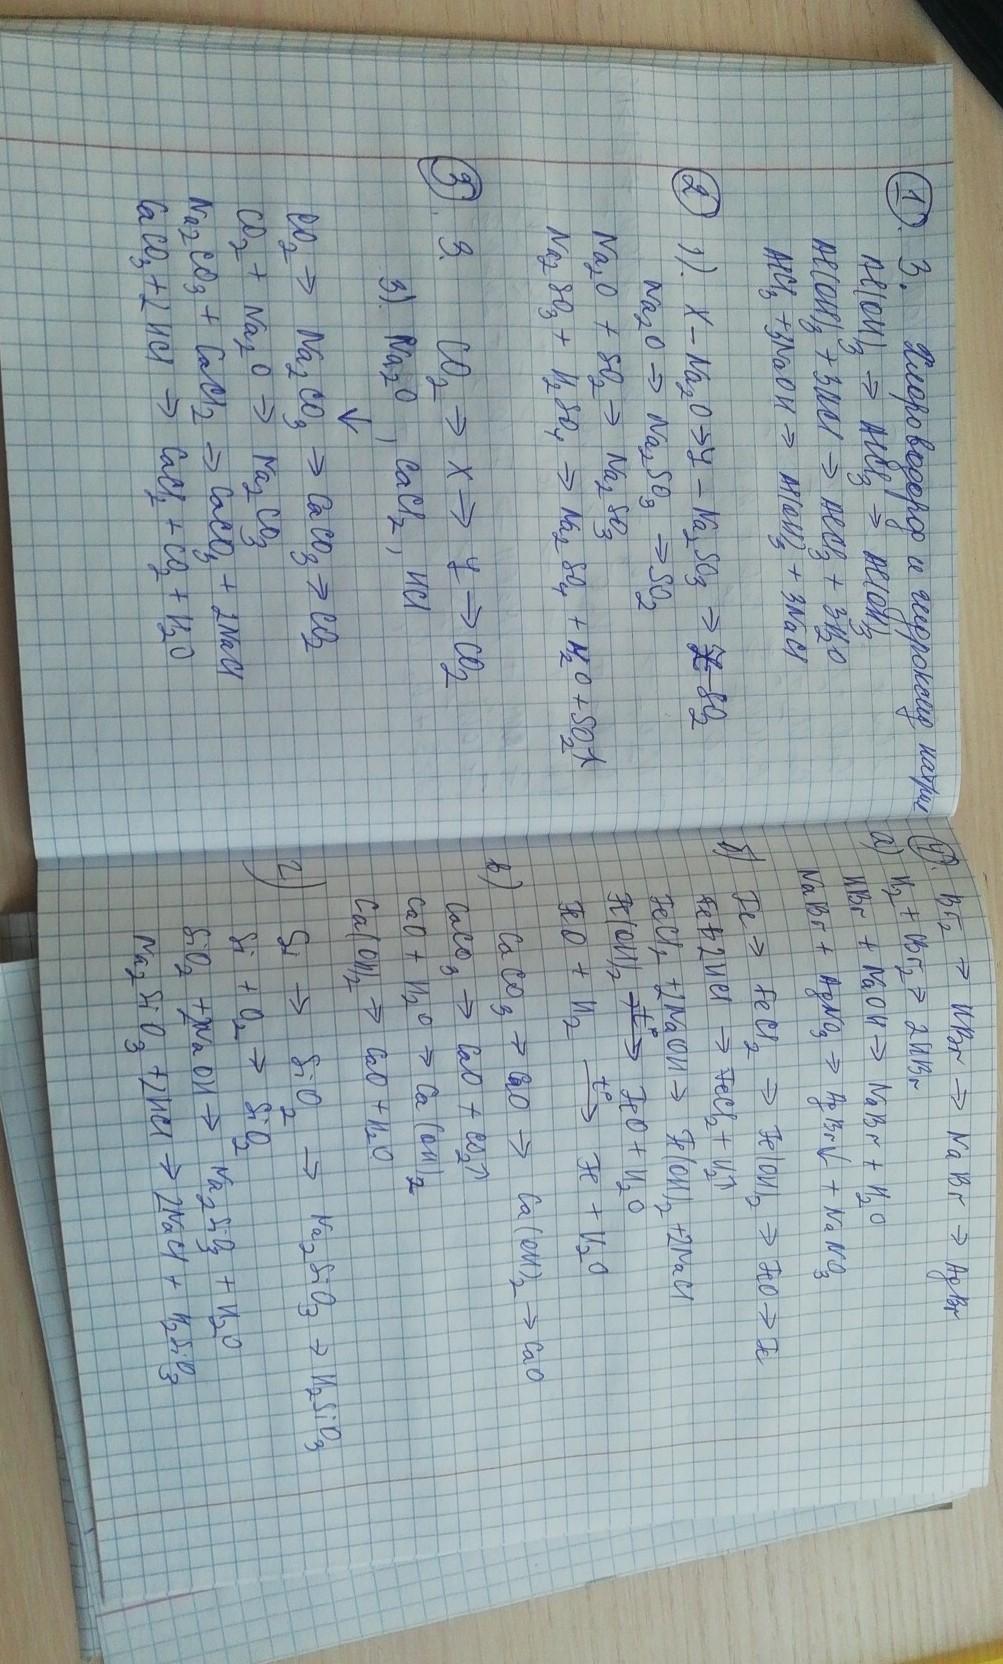 1. 3. Хлороводород и гидроксид натрия
Al(OH)3 → AlCl3 → Al(OH)3
Al(OH)3 + 3HCl → AlCl3 + 3H2O
AlCl3 + 3NaOH → Al(OH)3 + 3NaCl
2 1). X - Na2O → Y - Na2SO3 → Z - SO2
Na2O → Na2SO3 → SO2
Na2O + SO2 → Na2SO3
Na2SO3 + H2SO4 → Na2SO4 + H2O + SO2↑
3. 3. CO2 → X → Y → CO2
3). Na2O, CaCl2, HCl
↓
CO2 → Na2CO3 → CaCO3 → CO2
CO2 + Na2O → Na2CO3
Na2CO3 + CaCl2 → CaCO3 + 2NaCl
CaCO3 + 2HCl → CaCl2 + CO2 + H2O
4. Br2 → HBr → NaBr → AgBr
а) H2 + Br2 → 2HBr
HBr + NaOH → NaBr + H2O
NaBr + AgNO3 → AgBr↓ + NaNO3
б) Fe → FeCl2 → Fe(OH)2 → FeO → Fe
Fe + 2HCl → FeCl2 + H2↑
FeCl2 + 2NaOH → Fe(OH)2 + 2NaCl
Fe(OH)2 t°→ FeO + H2O
FeO + H2 t°→ Fe + H2O
в) CaCO3 → CaO → Ca(OH)2 → CaO
CaCO3 → CaO + CO2↑
CaO + H2O → Ca(OH)2
Ca(OH)2 → CaO + H2O
г) Si → SiO2 → Na2SiO3 → H2SiO3
Si + O2 → SiO2
SiO2 + 2NaOH → Na2SiO3 + H2O
Na2SiO3 + 2HCl → 2NaCl + H2SiO3